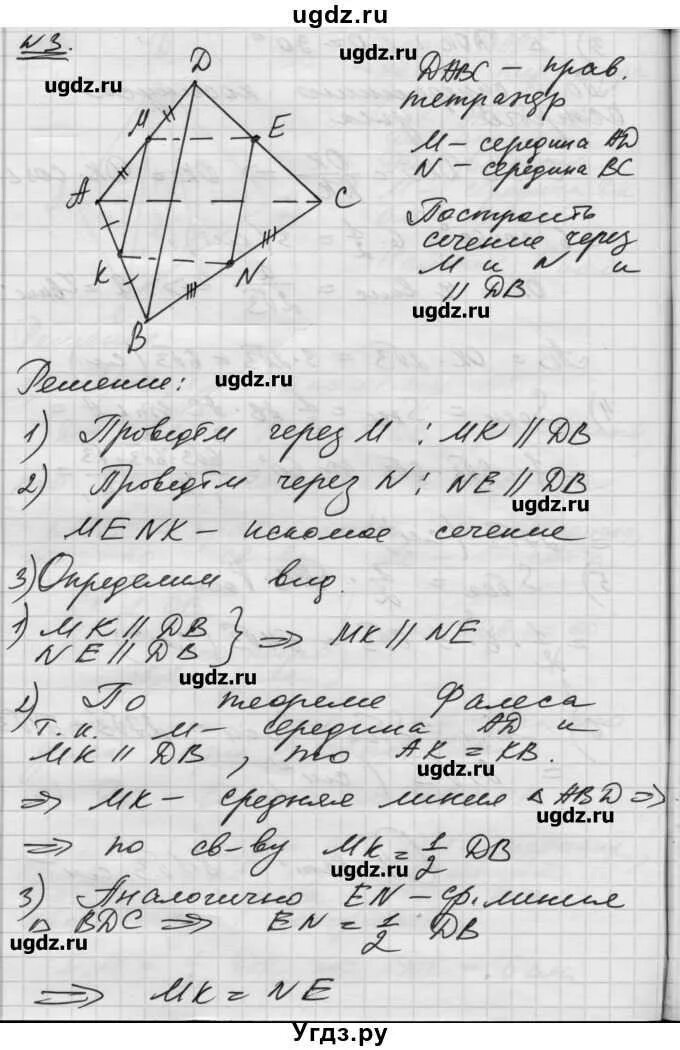 ugdz.ru
N3.
ugdz.ru
ugdz.ru
D
M
E
A
C
K
N
B
DABC – прав.
тетраэдр
ugdz.ru
M – середина AD
N – середина BC
Построить
сечение через
M и N и
// DB
ugdz.ru
Решение:
ugdz.ru
1) Проведём через M : MK // DB
2) Проведём через N : NE // DB
ugdz.ru
MENK – искомое сечение
3) Определим вид.
1) MK // DB
NE // DB } ⇒ MK // NE
ugdz.ru
2) По теореме Фалеса
т.к. M – середина AD и
MK // DB , то AK = KB.
ugdz.ru
⇒ MK – средняя линия △ ABD ⇒
ugdz.ru
⇒ по св-ву MK = 1/2 DB
ugdz.ru
3) Аналогично EN – ср. линия
△ BDC ⇒ EN = 1/2 DB
ugdz.ru
ugdz.ru
⇒ MK = NE
Угдз.ру